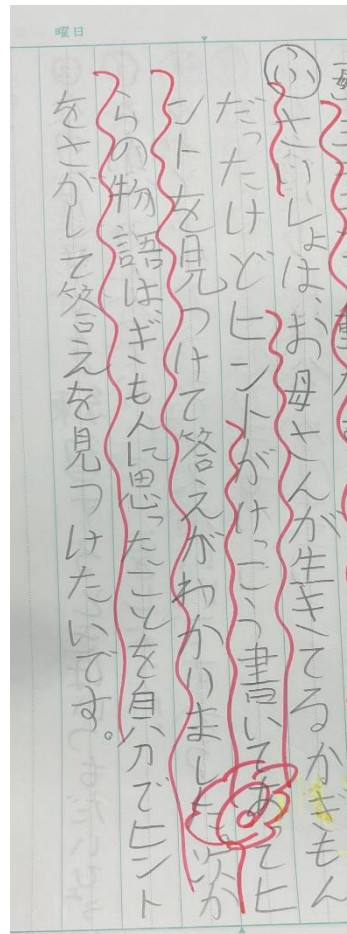 曜日
ふ さいしょは、お母さんが生きてるかぎもん
だったけどヒントがけっこう書いてあってヒ
ントを見つけて答えがわかりました。次か
らの物語は、ぎもんに思ったことを自分でヒント
をさがして答えを見つけたいです。